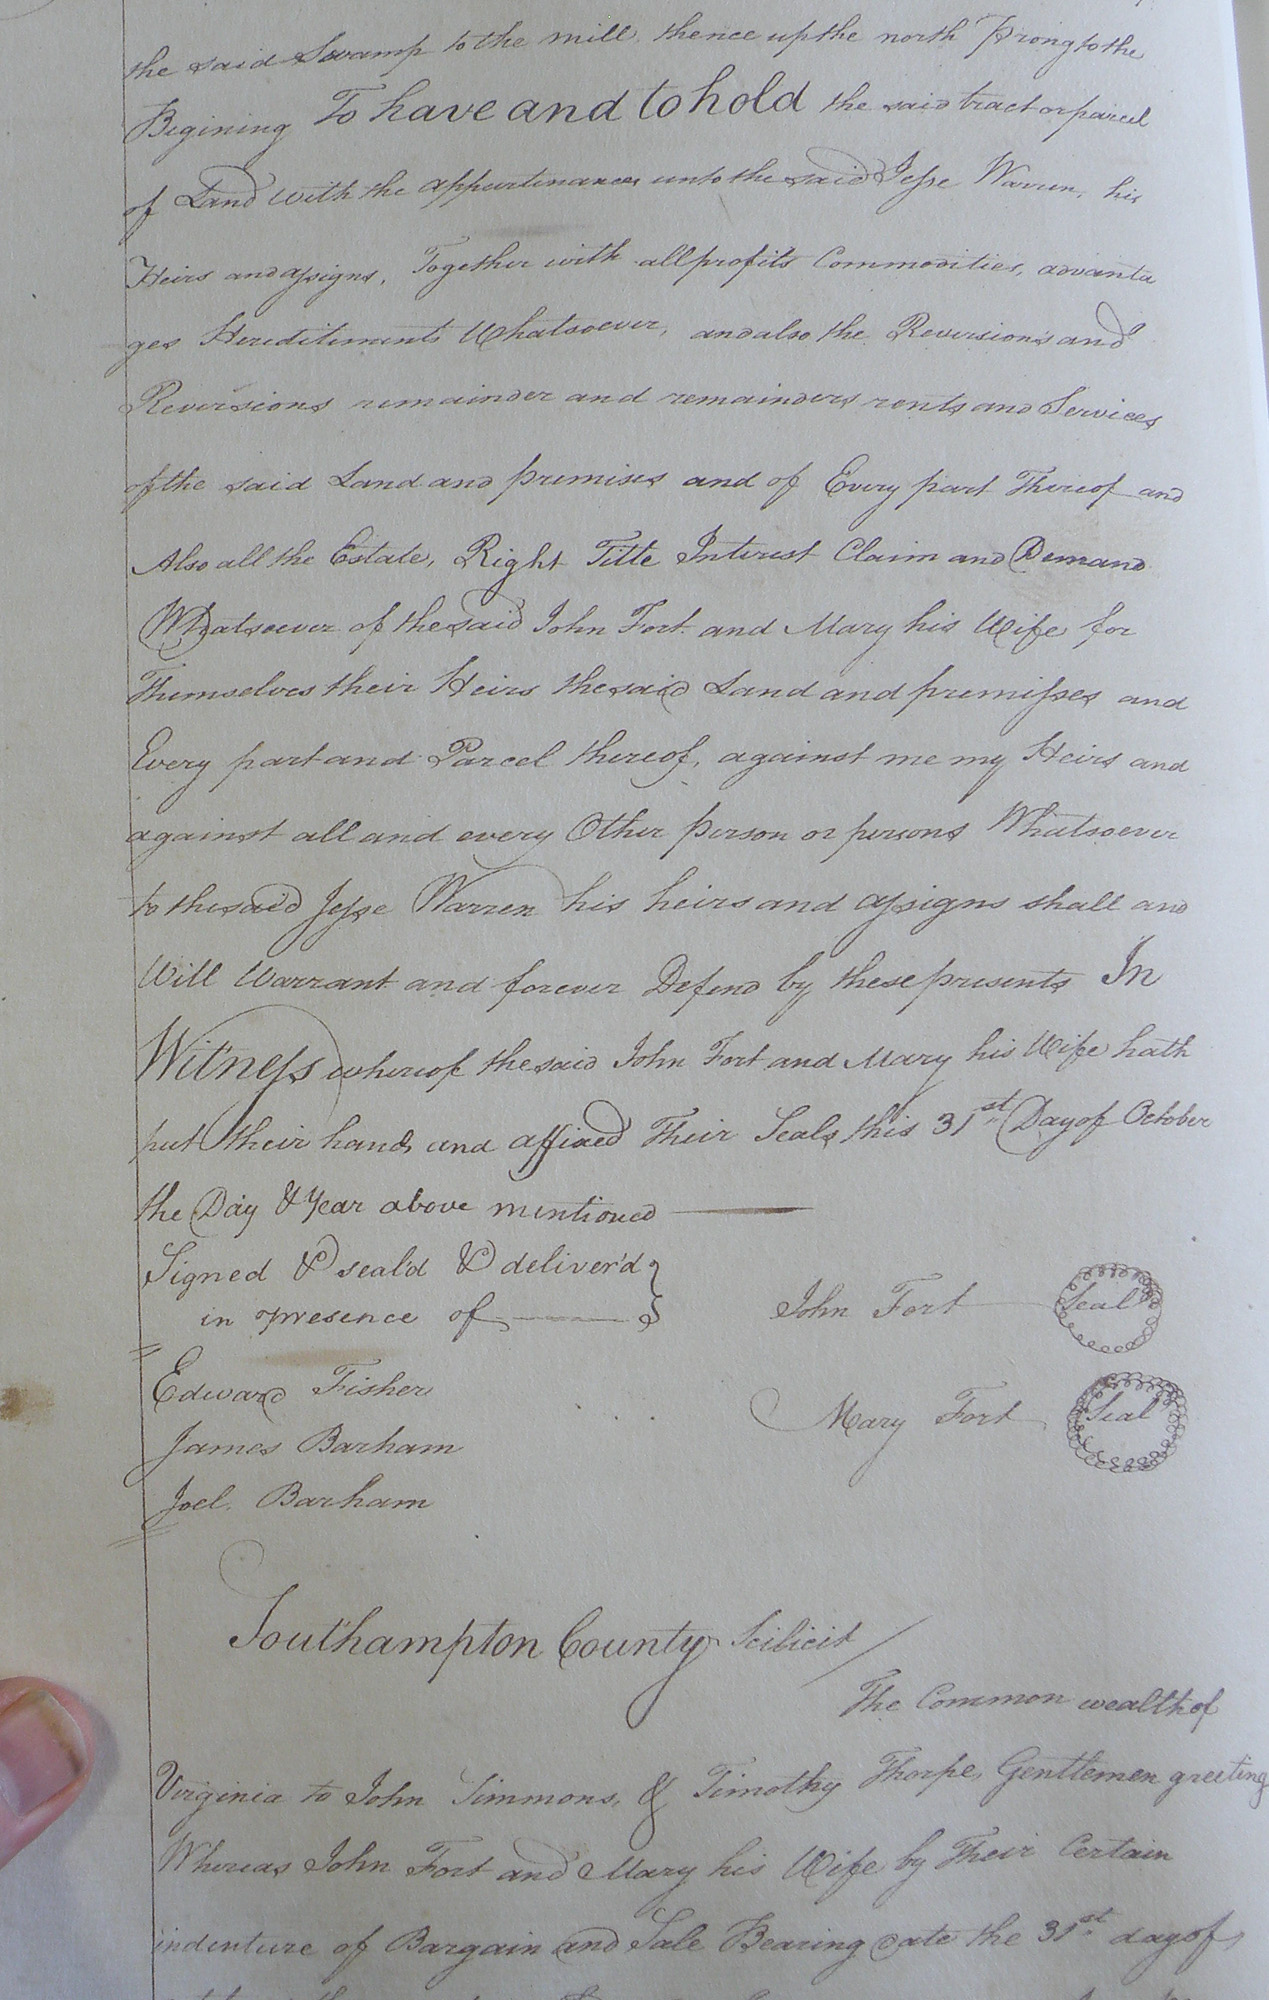 the said Swamp to the mill, thence up the north Prong to the
Begining To have and to hold the said tract or parcel
of Land with the appurtinances unto the said Jesse Warren, his
Heirs and assigns, Together with all profits Commodities, advanta
ges Hereditiments Whatsoever, and also the Reversions and
Reversions remainder and remainders rents and Services
of the said Land and premises and of Every part Thereof and
Also all the Estate, Right Title Interest Claim and Demand
Whatsoever of the said John Fort and Mary his Wife for
Themselves their Heirs the said Land and premisses and
Every part and Parcel thereof, against me my Heirs and
against all and every Other person or persons Whatsoever
to the said Jesse Warren his heirs and assigns shall and
Will Warrant and forever Defend by these presents In
Witness whereof the said John Fort and Mary his Wife hath
put their hands and affixed Their Seals this 31st Day of October
the Day & Year above mentioned
Signed & seal'd & deliver'd }
in presence of
John Fort Seal
Edward Fisher
Mary Fort Seal
James Barham
Joel Barham
Southampton County Scilicit /
The Common wealth of
Virginia to John Simmons, & Timothy Thorpe, Gentlemen greeting
Whereas John Fort and Mary his Wife by Their Certain
indenture of Bargain and Sale Bearing date the 31st day of